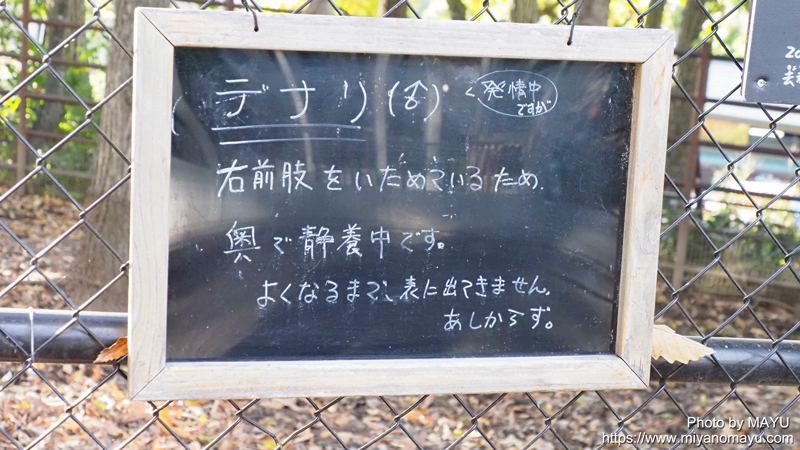 デナリ(♂)
発情中
ですが
右前肢をいためているため、
奥で静養中です。
よくなるまで、表に出てきません。
あしからず。
20
Photo by MAYU
https://www.miyanomayu.com/